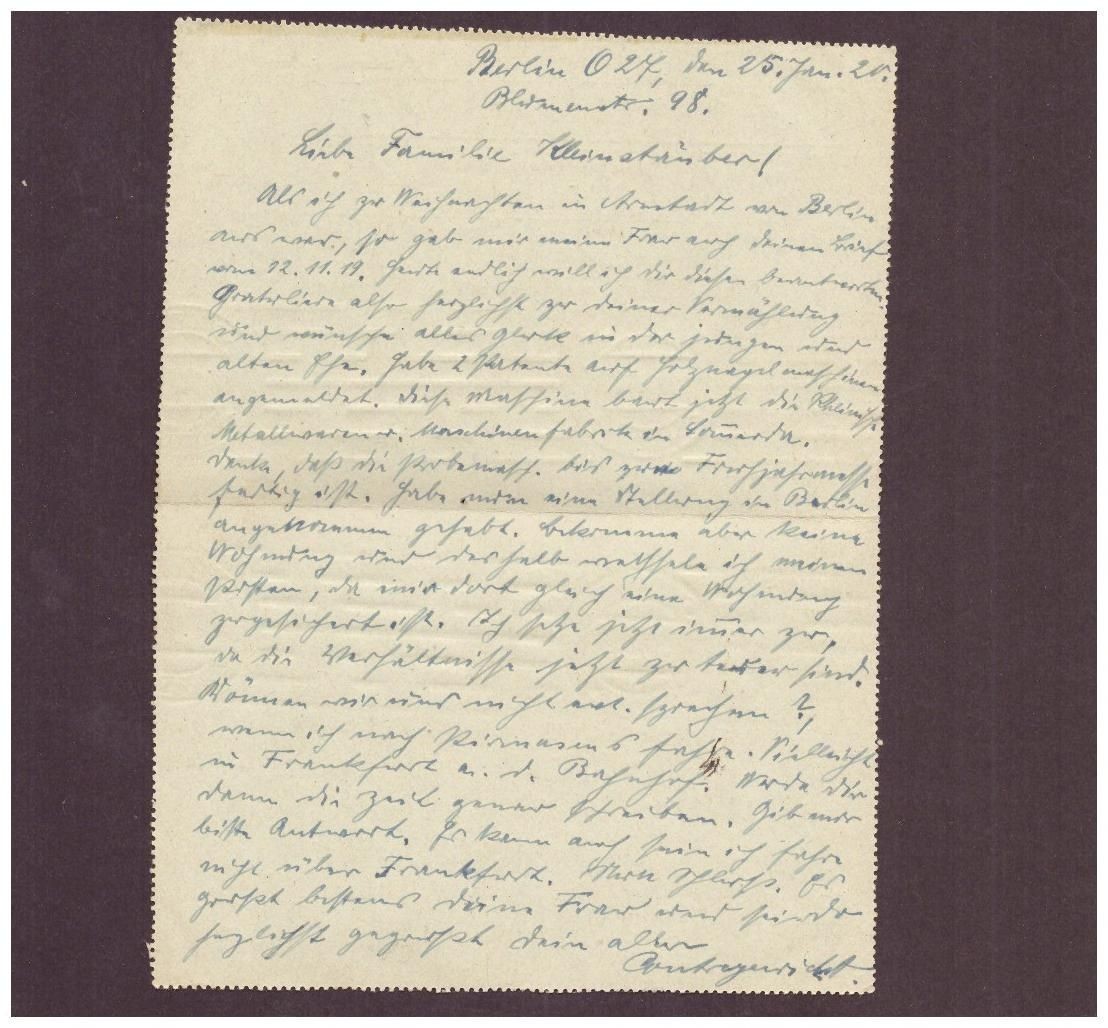 Berlin O 27, den 25. Jan. 20.
Blumenstr. 98.
Liebe Familie Kleinstäuber!
Als ich zu Weihnachten in Arnstadt von Berlin
aus war, so gab mir meine Frau auch deinen Brief
vom 12.11.19. Heute endlich will ich dir diesen beantworten.
Gratuliere also herzlichst zu deiner Vermählung
und wünsche alles Glück in der jungen und
alten Ehe. Habe 2 Patente auf Holznagelmaschinen
angemeldet. Diese Maschine baut jetzt die Rheinische
Metallwaren u. Maschinenfabrik in Sömmerda.
Denke, daß die Probemasch. bis zur Frühjahrmesse
fertig ist. Habe nun eine Stellung in Berlin
angenommen gehabt. Bekomme aber keine
Wohnung und deshalb wechsele ich meinen
Posten, da mir dort gleich eine Wohnung
zugesichert ist. Ich setze jetzt im̄er zu,
da die Verhältnisse jetzt zu teuer sind.
Können wir uns nicht evt. sprechen?,
wenn ich nach Pirmasens fahre. Vielleicht
in Frankfurt a. d. Bahnhof. Werde dir
dann die Zeit genau schreiben. Gib mir
bitte Antwort. Es kann auch sein ich fahre
nicht über Frankfurt. Nun Schluß. Es
grüßt bestens deine Frau und sei du
herzlichst gegrüßt dein alter